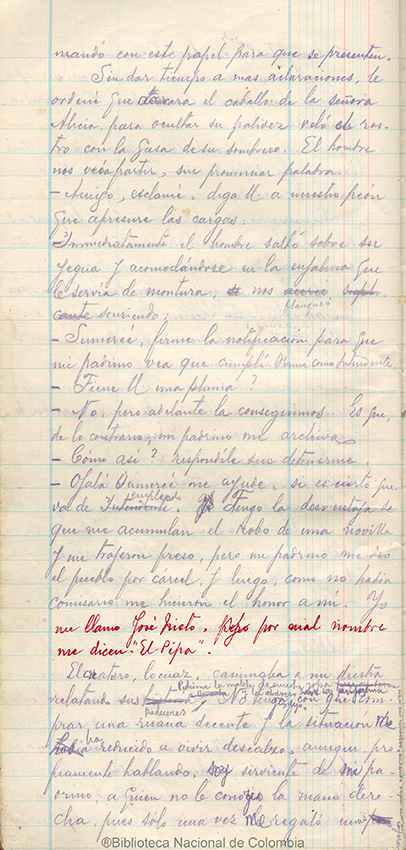 mandó con este papel para que se presenten.
Sin dar tiempo a mas aclaraciones, le
ordené que atara el caballo de la señora
Alicia, para ocultar su palidez veló el ros-
tro con la gasa de su sombrero. El hombre
nos veía partir, sin pronunciar palabra.
- Amigo, exclamé, diga U a nuestro peón
que apresure las cargas.
Inmediatamente el hombre saltó sobre su
yegua y acomodándose en la enjalma que
le servía de montura, nos acercó supli-
flanqueó
cante sonriendo:
- Sumercé, firme la notificación para que
mi padrino vea que cumplí. Firme como Intendente.
- Tiene U una pluma?
- No, pero adelante la conseguimos. Es que,
de lo contrario, mi padrino me archiva
- Cómo así? respondile sin detenerme.
- Ojalá Sumercé me ayude, si es cierto que
empleado
va de Intendente. Tengo la desventaja de
que me acumulan el robo de una novilla
y me trajeron preso, pero mi padrino me dió
el pueblo por cárcel, y luego, como no había
comisario me hicieron el honor a mí. Yo
me llamo José Nieto. Pero por mal nombre
me dicen "El Pipa".
El cuatero, locuaz, caminaba a mi diestra
relatando sus
padeceres
No tengo con que com-
prar una ruana decente y la situación me
ha reducido a vivir descalzo, aunque, pro-
piamente hablando, soy sirviente de mi pa-
drino, a quien no le conozco la mano dere-
cha, pues sólo una vez me regaló
©Biblioteca Nacional de Colombia